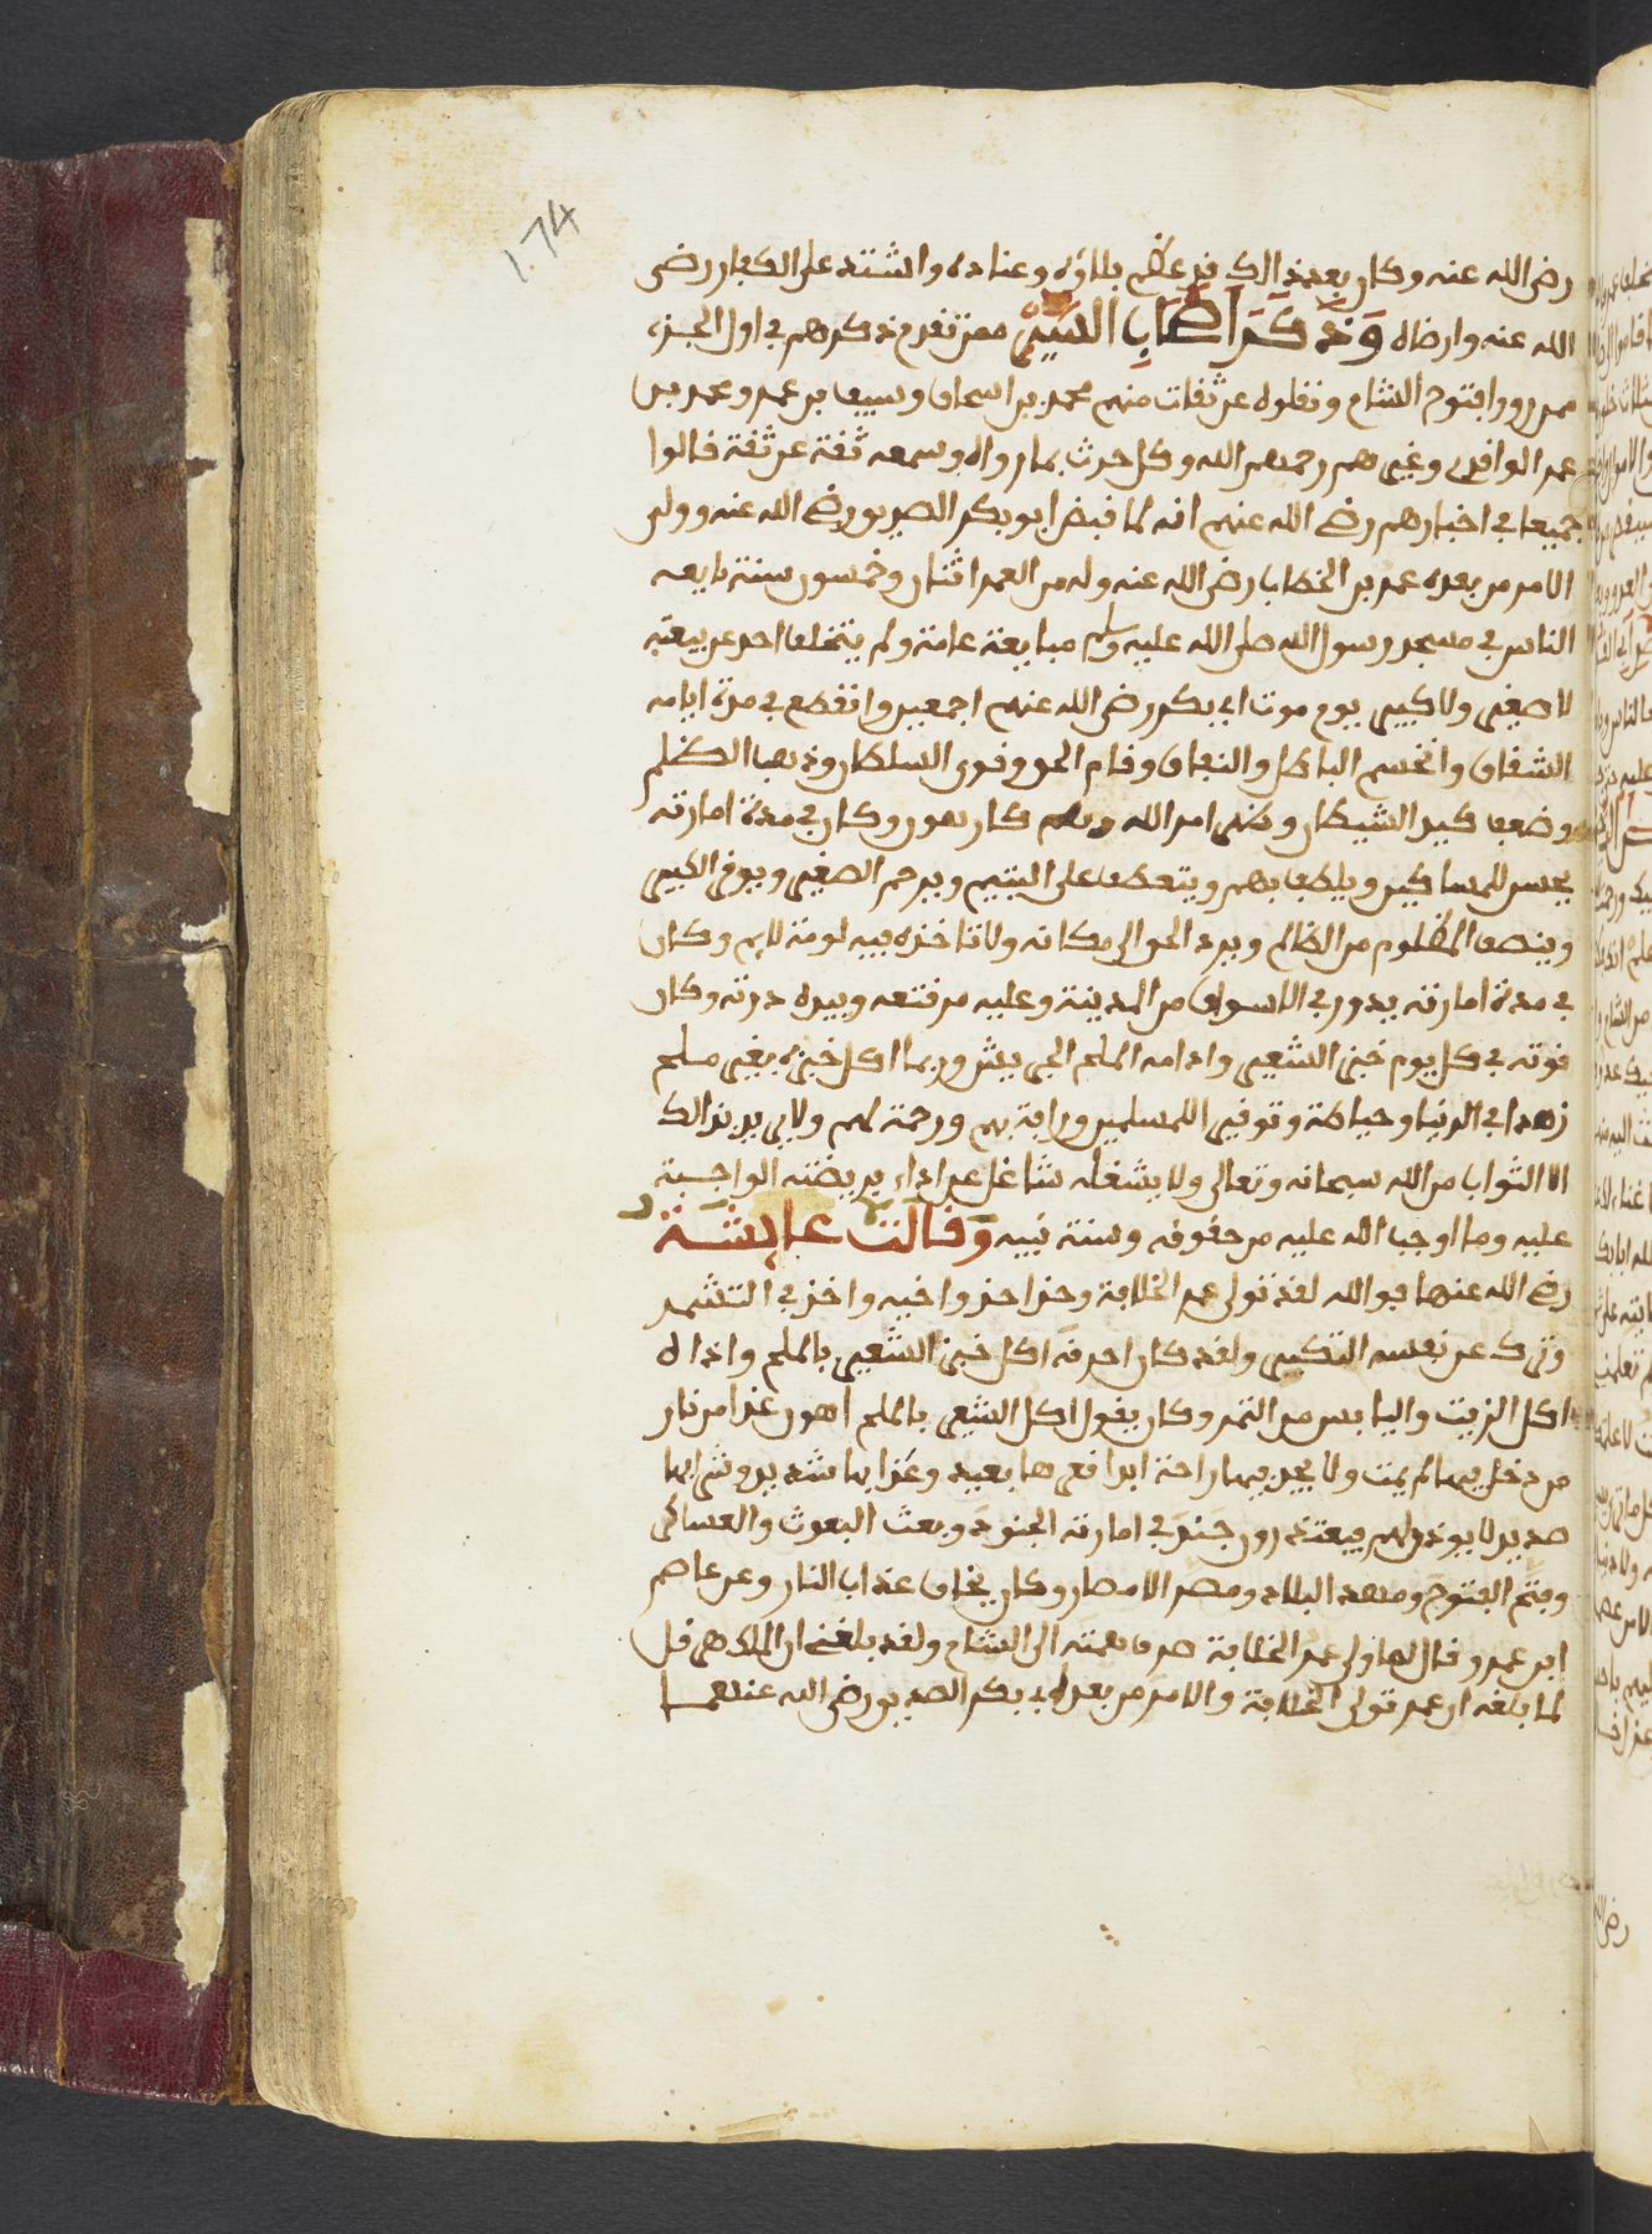 1.74
رضى الله عنه وكان بعد ذالك قد عظم بلاؤه وعناده واشتد على الكفار رضى
الله عنه وارضاه وَذكَرَ اصْحَابِ السِّيَرِ ممن تقدم ذكرهم في اول الجزء
ممن روو افتوح الشام ونقلوه عن ثقات منهم محمد بن اسحاق وسيف بن عمر ومحمد بن
عمر الواقدي وغيرهم رحمهم الله وكل حدث بما رواه وسمعه ثقة عن ثقة قالوا
جميعا في اخبارهم رضي الله عنهم انه لما قبض ابو بكر الصديق رضي الله عنه وولى
الامر من بعده عمر بن الخطاب رضى الله عنه وله من العمر اثنان وخمسون سنة بايعه
الناس في مسجد رسول الله صلى الله عليه وسلم مبايعة عامة ولم يتخلف احد عن بيعته
لا صغير ولا كبير يوم موت ابي بكر رضى الله عنهم اجمعين وانقطع في مدة ايامه
الشقاق وانحسم الباطل والنفاق وقام الحق وقوى السلطان وذهب الظلم
وضعف كيد الشيطان وظهر امر الله وهم كارهون وكان في مدة امارته
يجلس للمساكين ويلطف بهم ويتعطف على اليتيم ويرحم الصغير ويوقر الكبير
وينصف المظلوم من الظالم ويرد الحق الى مكانه ولا تاخذه فيه لومة لايم وكان
في مدة امارته يدور في الاسواق من المدينة وعليه مرقعه وبيده درته وكان
قوته في كل يوم خبز الشعير وادامه الملح الجريش وربما اكل خبزه بغير ملح
زهدا في الدنيا وحياطة وتوفير اللمسلمين ورافة بهم ورحمة لهم ولا يريد بذالك
الا الثواب من الله سبحانه وتعالى ولا يشغله شاغل عن اداء فريضته الواجبة
عليه وما اوجب الله عليه من حقوقه وسنة نبيه وَقَالَتْ عايشة
رضي الله عنها فو الله لقد تولى عمر الخلافة وحذا حذو اخيه واخذ في التشمر
وترك عن نفسه التكبر ولقد كان احرقه اكل خبز الشعير بالملح واذاه
اكل الزيت واليابس من التمر وكان يقول اكل الشعير بالملح اهون غدا من نار
من دخل فيها لم يمت ولا يجد فيها راحة ابدا قعرها بعيد وعذابها شديد وشرابها
صديد لا يوذن لهم فيعتذرون جَندَ في امارته الجنود وبعث البعوث والعساكر
وفتح الفتوح ومهد البلاد ومصر الامصار وكان يخاف عذاب النار وعن عاصم
ابن عمر وقال لما ولى عمر الخلافة صرف همته الى الشام ولقد بلغني ان الملك هرقل
لما بلغه ان عمر تولى الخلافة والامر من بعد ابي بكر الصديق رضى الله عنهما